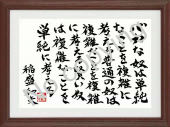 バカな奴は単純
なことを複雑に
考える普通の奴は
複雑なことを複雑
に考える賢い奴
は複雑なことを
単純に考える
稲盛和夫